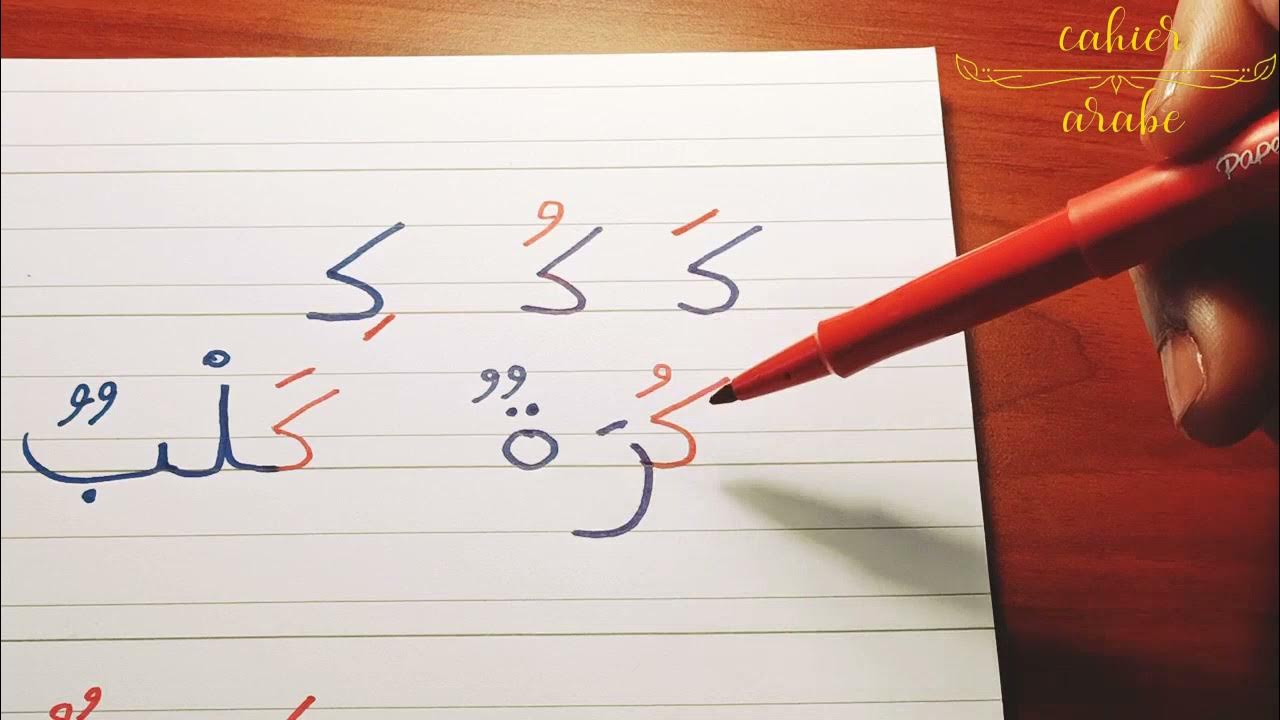 cahier
arabe
Papa
كَ كُ كِ
كُرَةٌ كَلْبٌ